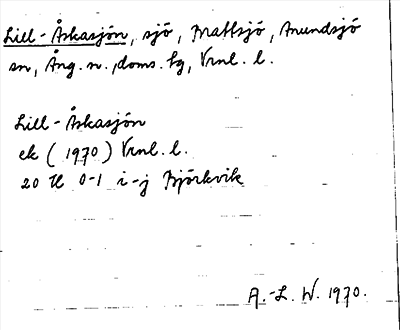 Lill-Åskasjön, sjö, Mattsjö, Anundsjö
sn, Ång. n., doms. fg, Vrnl. l.
Lill-Åskasjön
ek (1970) Vrnl. l.
20 H 0-1 i-j Björkvik
A.-L. W. 1970.